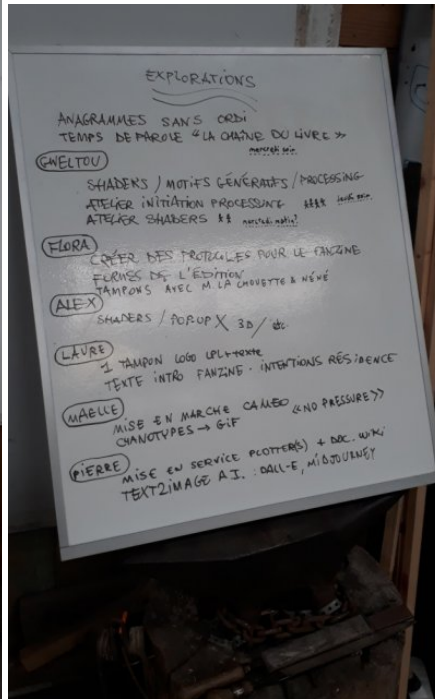 EXPLORATIONS
ANAGRAMMES SANS ORDI
TEMPS DE PAROLE "LA CHAÎNE DU LIVRE"
mercredi soir
GWELTOU
SHADERS / MOTIFS GÉNÉRATIFS / PROCESSING
ATELIER INITIATION PROCESSING **** jeudi soir
ATELIER SHADERS ** mercredi matin?
FLORA
CRÉER DES PROTOCOLES POUR LE FANZINE
FORMES DE L'ÉDITION
TAMPONS AVEC M. LA CHOUETTE & NÉNÉ
ALEX
SHADERS / POP-UP X 3D / etc.
LAURE
1 TAMPON LOGO LPL + texte
TEXTE INTRO FANZINE - INTENTIONS RÉSIDENCE
MAELLE
MISE EN MARCHE CAMEO «NO PRESSURE»
CYANOTYPES → GIF
PIERRE
MISE EN SERVICE PLOTTER(S) + DOC. WIKI
TEXT2IMAGE A.I. : DALL-E, MIDJOURNEY